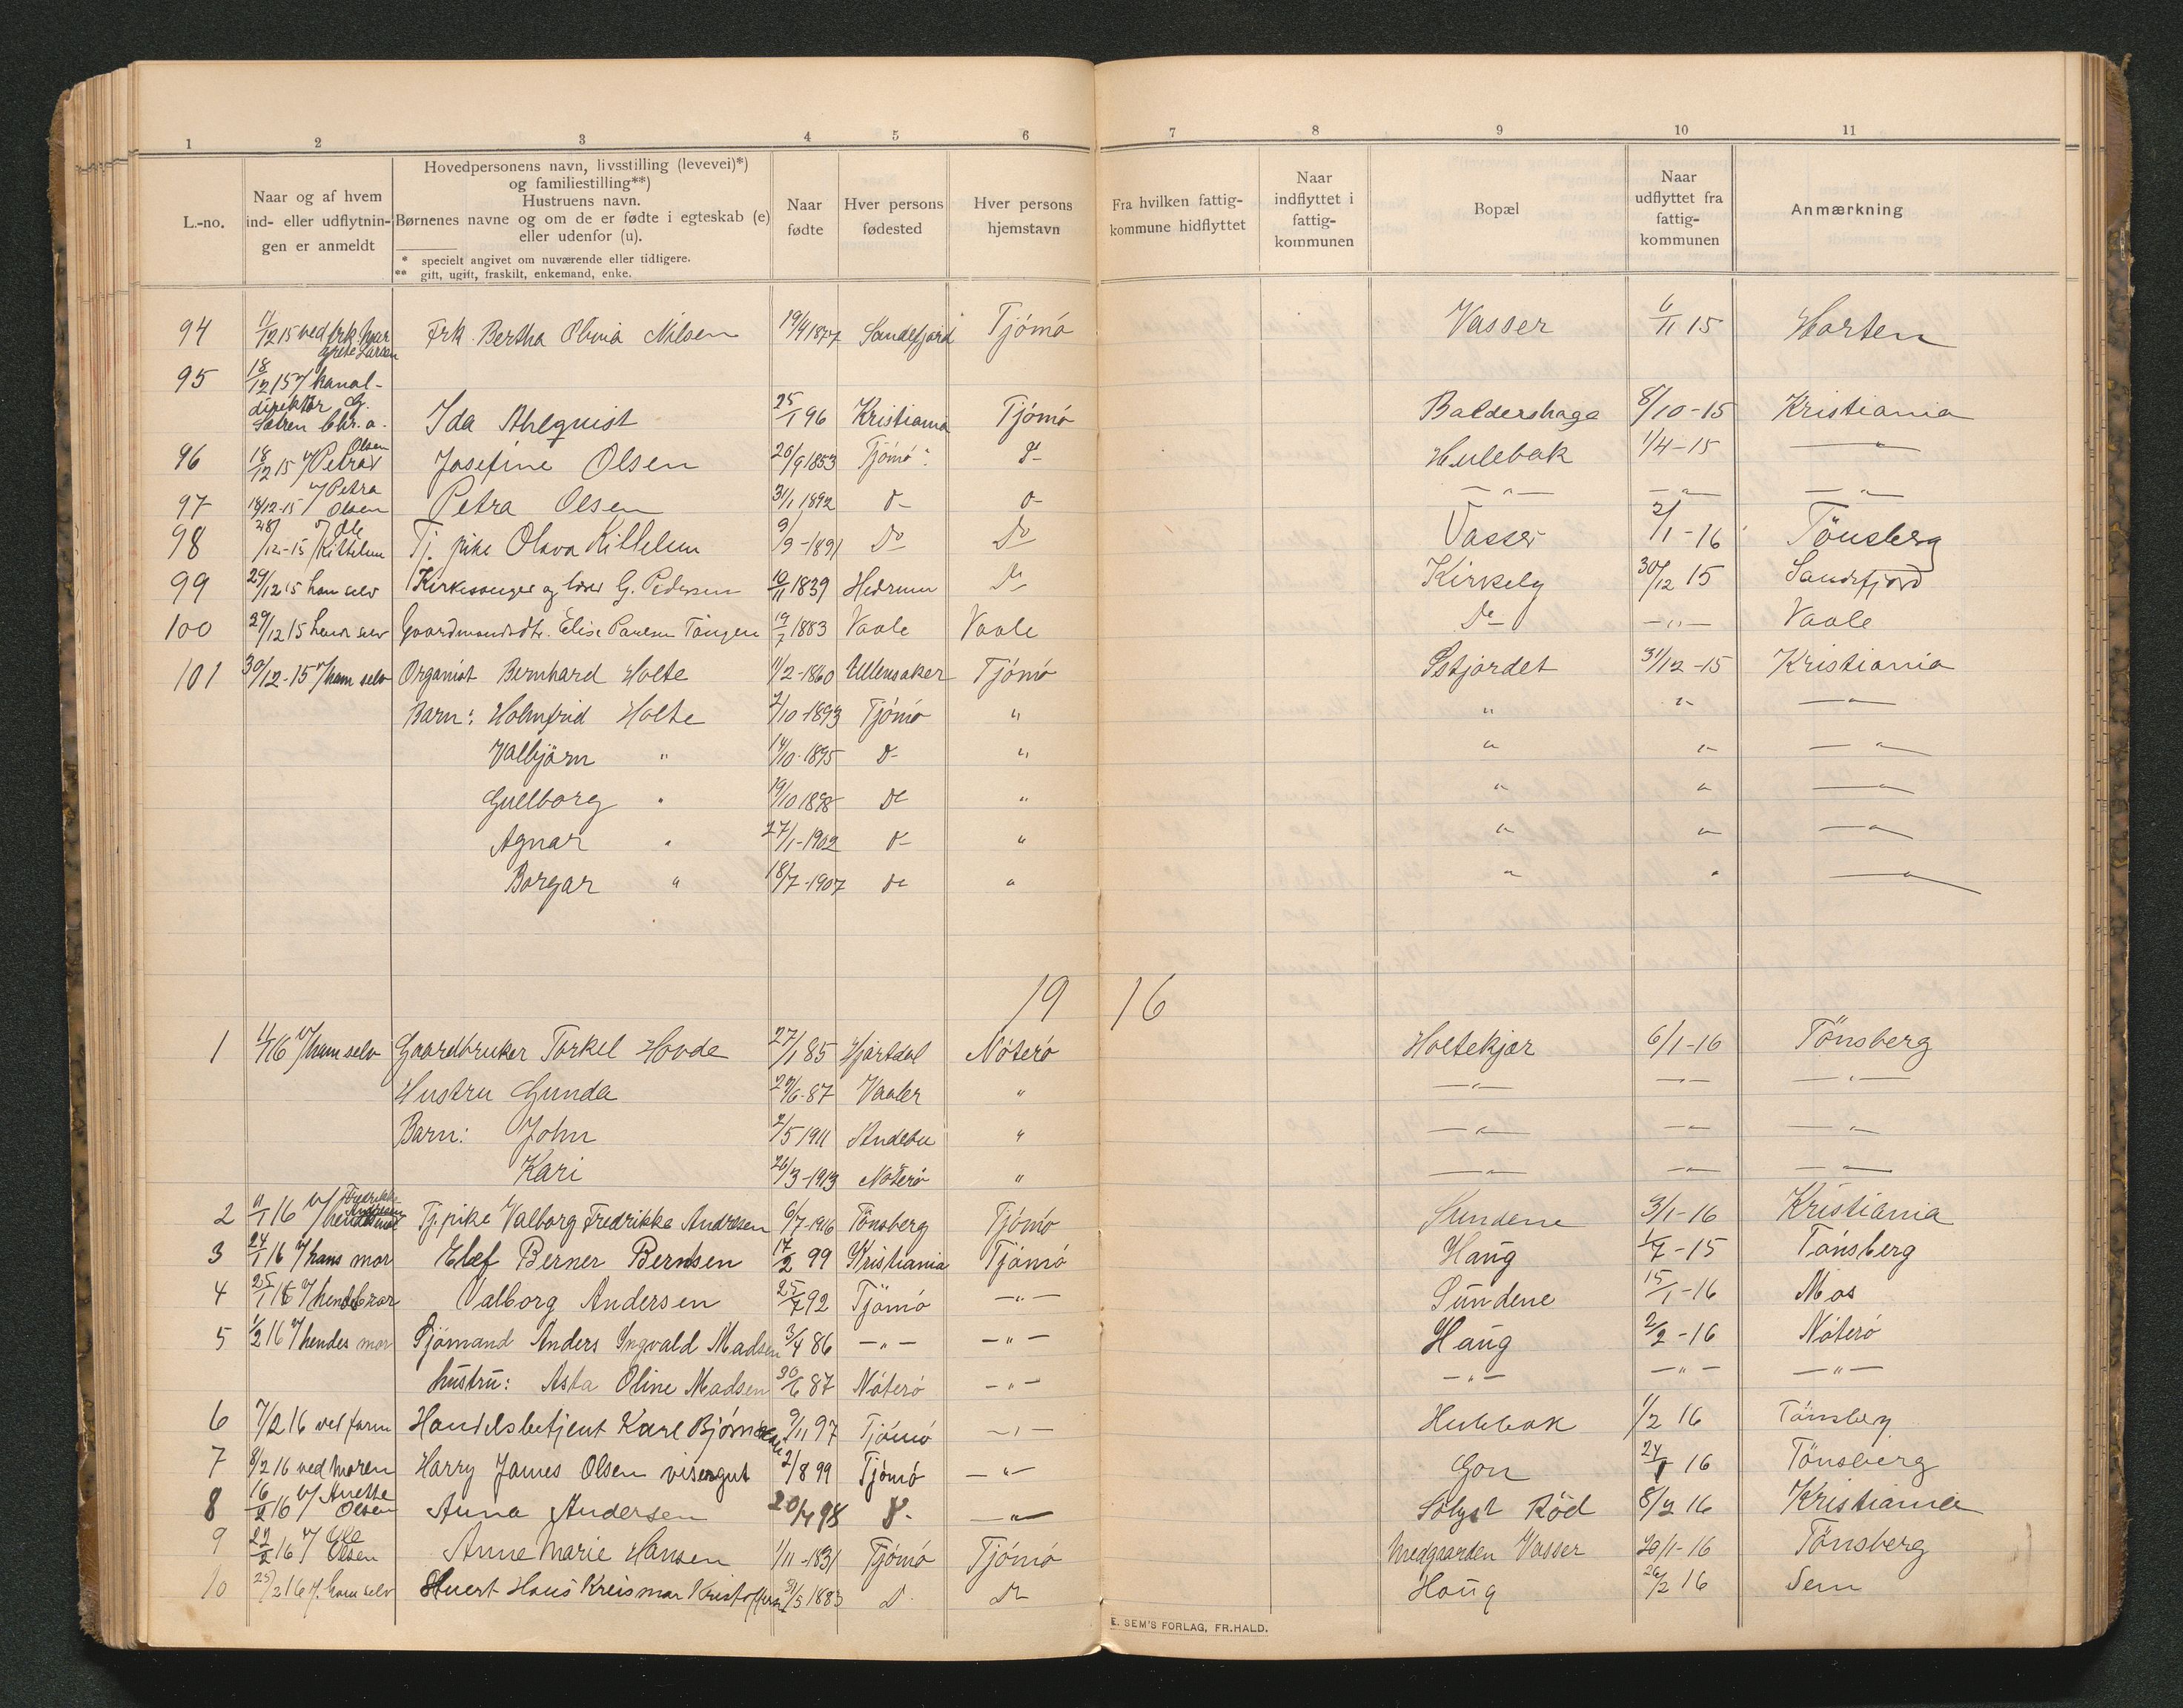 1 2 3 4 5 6 7 8 9 10 11
L.-no.
Naar og af hvem
ind- eller udflytnin-
gen er anmeldt
Hovedpersonens navn, livsstilling (levevei)*)
og familiestilling**)
Hustruens navn.
Børnenes navne og om de er fødte i egteskab (e)
eller udenfor (u).
* specielt angivet om nuværende eller tidligere.
** gift, ugift, fraskilt, enkemand, enke.
Naar
fødte
Hver persons
fødested
Hver persons
hjemstavn
Fra hvilken fattig-
kommune hidflyttet
Naar
indflyttet i
fattig-
kommunen
Bopæl
Naar
udflyttet fra
fattig-
kommunen
Anmærkning
94 11/12 15 ved frk. Mar grete Larsen Frk. Bertha Olivia Nilsen 19/4 1877 Sandefjord Tjömö Vasser 6/11 15 Horten
95 18/12 15 v/ kanal-
direktør G.
Sætren Chr.a. Ida Ahlquist 25/1 96 Kristiania Tjömö Baldershage 8/10-15 Kristiania
96 18/12 15 v/ Petra Olsen Josefine Olsen 26/9 1853 Tjömö do Hulebak 1/4-15 —"—
97 18/12-15 v/ Petra Olsen Petra Olsen 31/1 1892 do do —"— —"— —"—
98 28/12-15 v/ Ole Kittelsen Tj. pike Olava Kittelsen 9/9-1891 Do Do Vasser 2/1-16 Tönsberg
99 29/12 15 ham selv Kirkesanger og lærer G. Pedersen 10/11 1839 Hedrum Do Kirkely 30/12 15 Sandefjord
100 29/12 15 hende selv Gaardmandsdtr. Elise Paulsen Tangen 19/7 1883 Vaale Vaale Do —"— Vaale
101 30/12-15 v/ ham selv Organist Bernhard Holte 11/2-1860 Ullensaker Tjömö Østjordet 31/12-15 Kristiania
Barn: Holmfrid Holte 2/10-1893 Tjömö " " " —"—
Valbjörn " 14/10-1895 do " " " —"—
Gullborg " 19/10 1898 do " " " —"—
Agnar " 27/1-1902 do " " " —"—
Borgar " 18/7-1907 do " " " —"—
19 16
1 11/1 16 v/ ham selv Gaardbruker Torkel Hovde 27/1 85 Hjartdal Nöterö Holtekjær 6/1-16 Tönsberg
Hustru Gunda 29/6-87 Vaaler " —"— —"— —"—
Barn: John 2/5 1911 Andebu " —"— —"— —"—
Kari 26/3-1913 Nöterö " —"— —"— —"—
2 11/1 16 v/ Fredrikke Andersen Tj. pike Valborg Fredrikke Andersen 6/7-1916 Tönsberg Tjömö Sundene 3/1-16 Kristiania
3 24/1 16 v/ hans mor Elef Berner Berntsen 17/2 99 Kristiania Tjömö Haug 1/7-15 Tönsberg
4 25/1 16 v/ hendes bror Valborg Andersen 25/7 92 Tjömö —"— Sundene 15/1-16 Mos
5 1/2 16 v/ hendes mor Sjömand Anders Yngvald Madsen 3/4 86 —"— —"— Haug 2/2-16 Nöterö
hustru: Asta Oline Madsen 30/6 87 Nöterö —"— —"— —"— —"—
6 7/2 16 ved faren Handelsbetjent Karl Bjørn 9/11 97 Tjömö —"— Hulebak 1/2 16 Tönsberg
7 8/2 16 ved Moren Harry James Olsen visergut 2/8 99 Tjömö —"— Gon 24/1 16 Tönsberg
8 16/2 16 v/ Anette Olsen Anna Andersen 20/4 98 do —"— Solyst Röd 8/2 16 Kristiania
9 22/2 16 v/ Ole Olsen Anne Marie Hansen 1/11-1831 Tjömö Tjömö Nedgaarden Vasser 20/1-16 Tönsberg
10 25/2 16 v. ham selv Stuert Hans Kreismar Kristoffersen 31/5 1883 Do Do Haug 26/2 16 Sem
E. SEM'S FORLAG, FR.HALD.